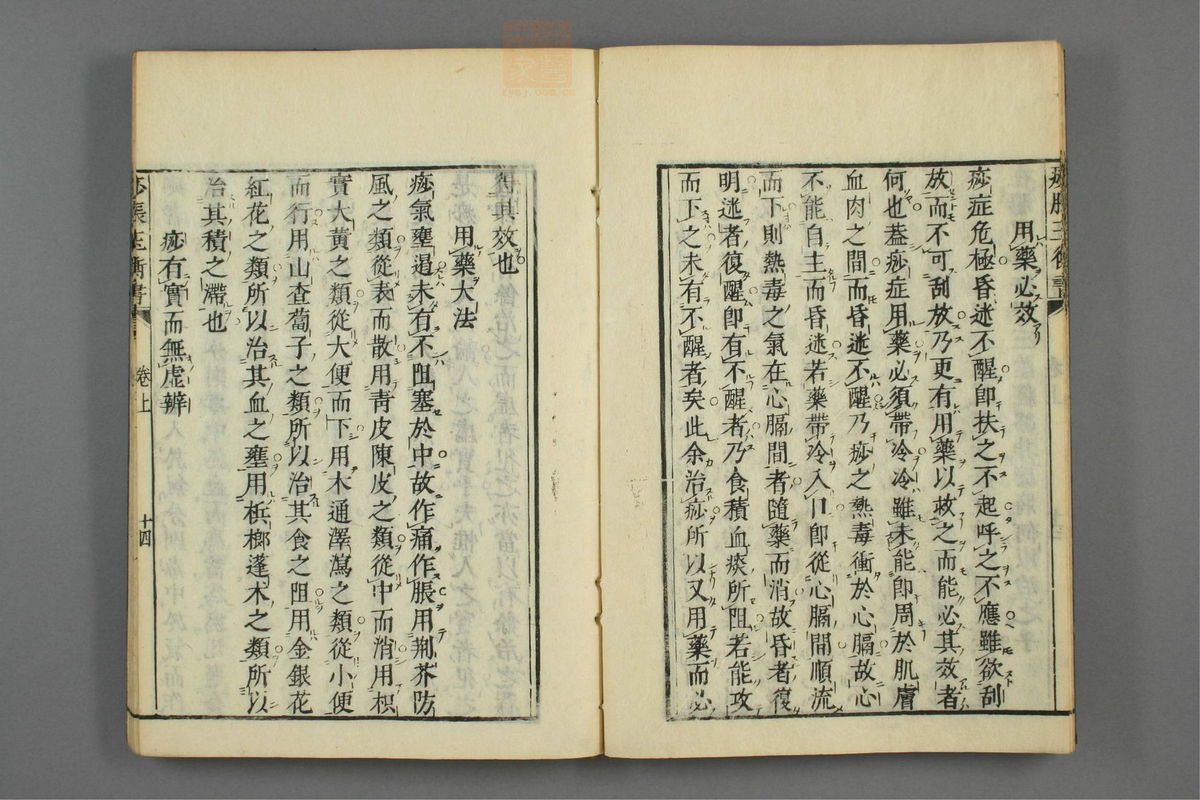 痧脹玉衡書
用藥必效
痧症危極昏迷不醒即扶之不起呼之不應雖欲刮
放而不可刮放乃更有用藥以救之而能必其效者
何也葢痧症用藥必須帶冷冷雖未能即周於肌膚
血肉之間而昏迷不醒乃痧之熱毒衝於心膈故心
不能自主而昏迷若藥帶冷入口即從心膈間順流
而下則熱毒之氣在心膈間者隨藥而消故昏者復
明迷者復醒即有不醒者乃食積血痰所阻若能攻
而下之未有不醒者矣此余治痧所以又用藥而必
得其效也
用藥大法
痧氣壅遏未有不阻塞於中故作痛作脹用荆芥防
風之類從表而散用青皮陳皮之類從中而消用枳
實大黃之類從大便而下用木通澤瀉之類從小便
而行用山査蔔子之類所以治其食之阻用金銀花
紅花之類所以治其血之壅用梹榔蓬术之類所以
治其積之滯也
痧有實而無虛辨
痧脹玉衡書
卷上
十四